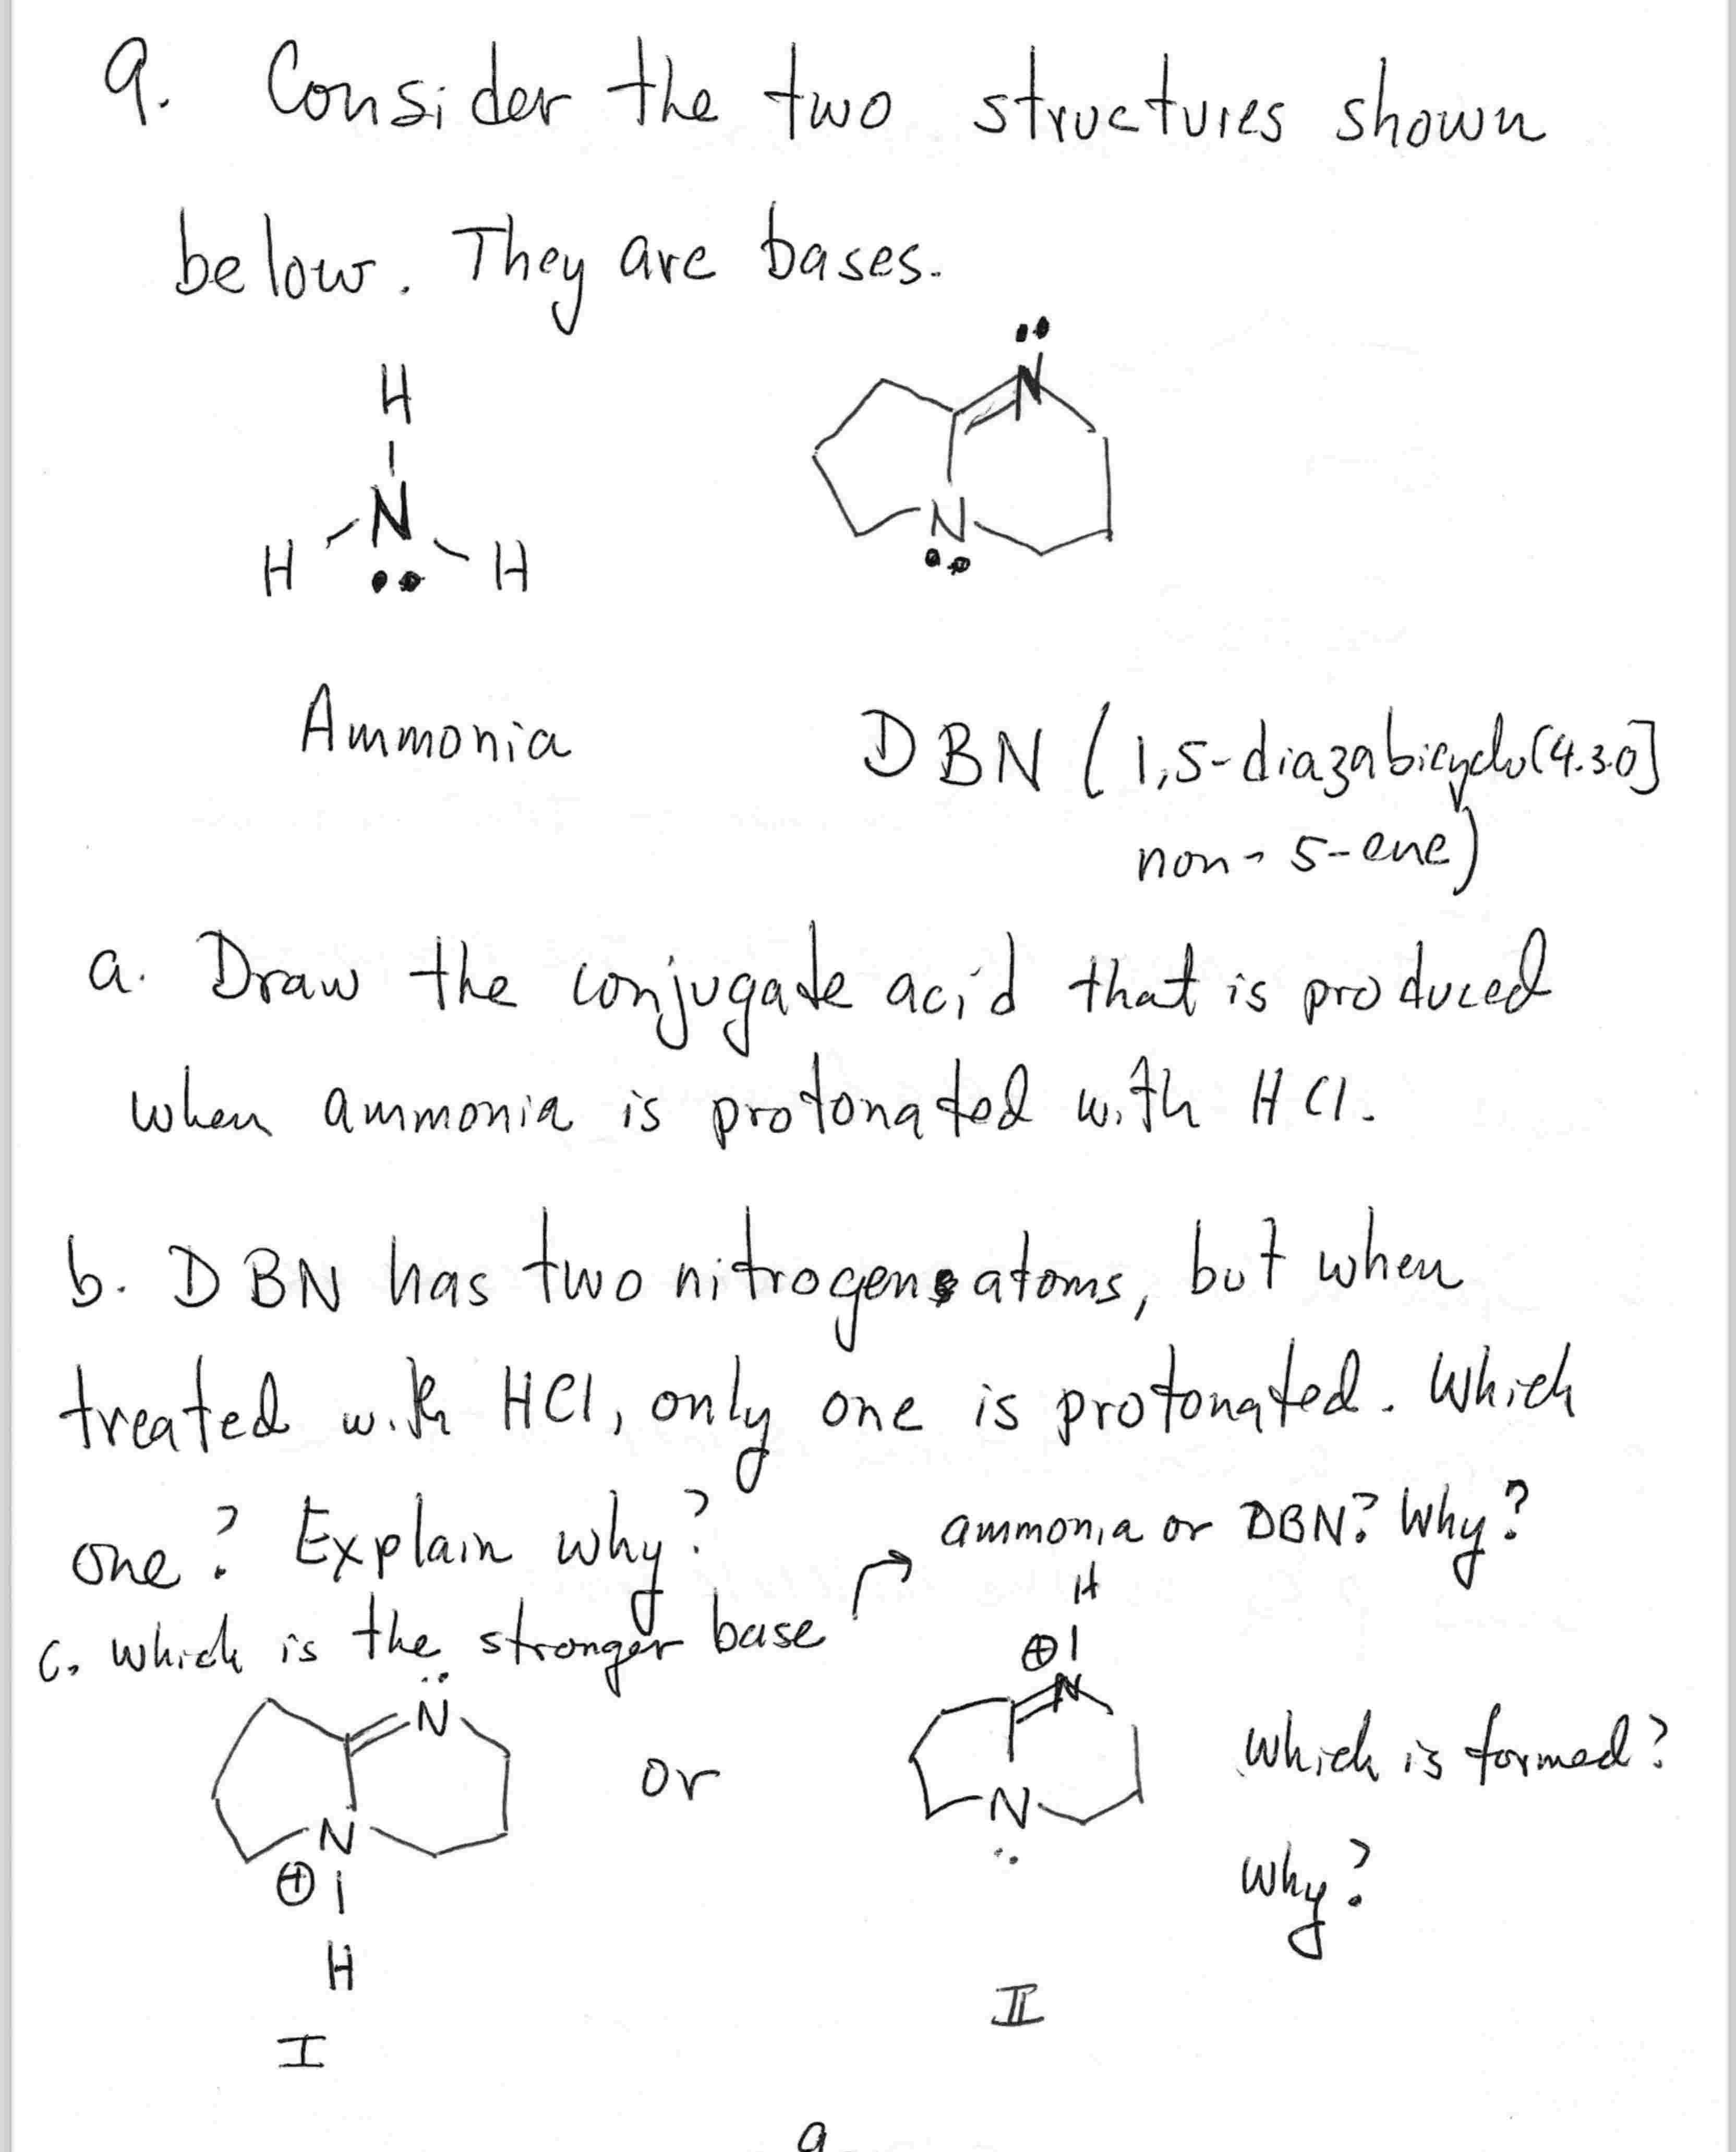 9. Consider the two structures shown
below. They are bases.
H
N
H
H
N
N
Ammonia
DBN (1,5-diazabicyclo(4.3.0]
non-5-ene)
a. Draw the conjugate acid that is produced
when ammonia is protonated with HCl.
b. DBN has two nitrogens atoms, but when
treated with HCl, only one is protonated. Which
one? Explain why?
c. which is the stronger base → ammonia or DBN? Why?
N
N
⊕
H
I
or
H
⊕
N
N
II
Which is formed?
Why?
9